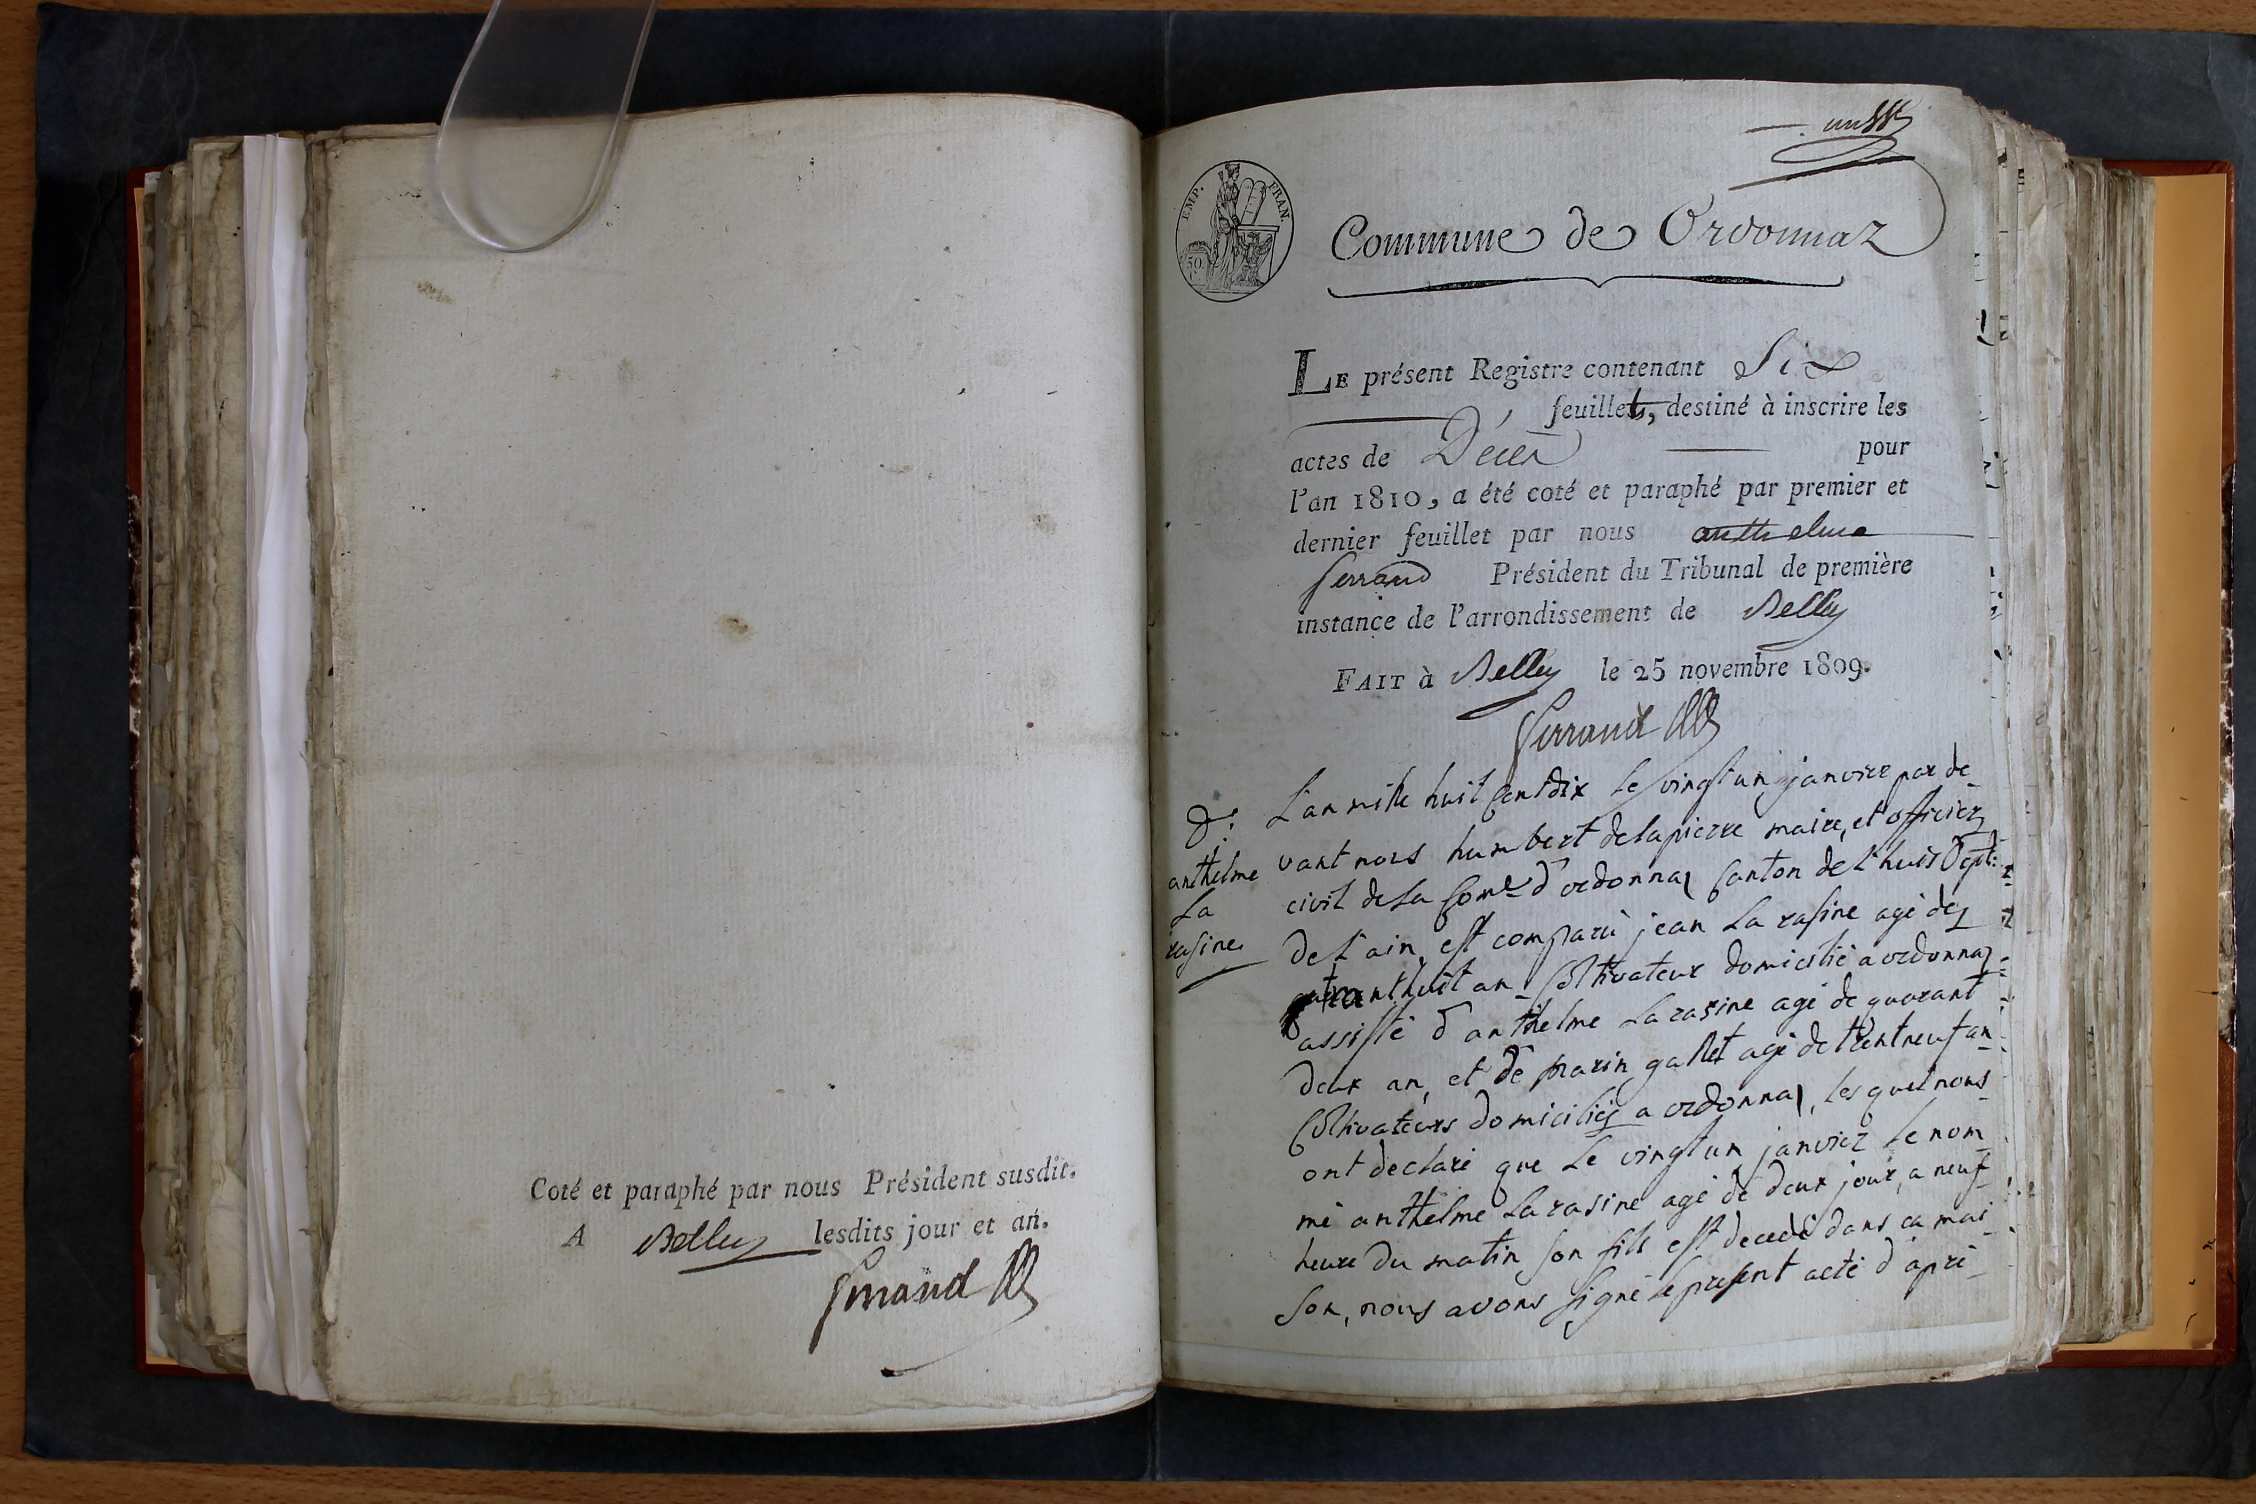 Coté et paraphé par nous Président susdit.
A Belley lesdits jour et an.
Serrand
EMP. FRAN.
50
Commune de Ordonnaz
LE présent Registre contenant Six
feuillets, destiné à inscrire les
actes de Décès pour
l'an 1810, a été coté et paraphé par premier et
dernier feuillet par nous anthelme
Serrand Président du Tribunal de première
instance de l'arrondissement de Belley
FAIT à Belley le 25 novembre 1809.
Serrand
D.
anthelme
La
rasine.
L'an mille huit Cent dix le vingt un janvier par de
vant nous humbert delapierre maire, et officier
civil de la Com.e d'ordonnaz Canton de l'huis Dept:
de l'ain est comparu jean La rasine agé de
huit an Coltivateur domicilié a ordonnaz
assisté d'anthelme La rasine agé de quarant
deux an, et de marin gallet agé de trent neuf an
Coltivateurs domiciliés a ordonnaz, les quel nous
ont declaré que le vingt un janvier le nom
mé anthelme La rasine agé de deux jour, a neuf
heure du matin son fils est decedé dans ca mai
son, nous avons signé le present acte d'apré